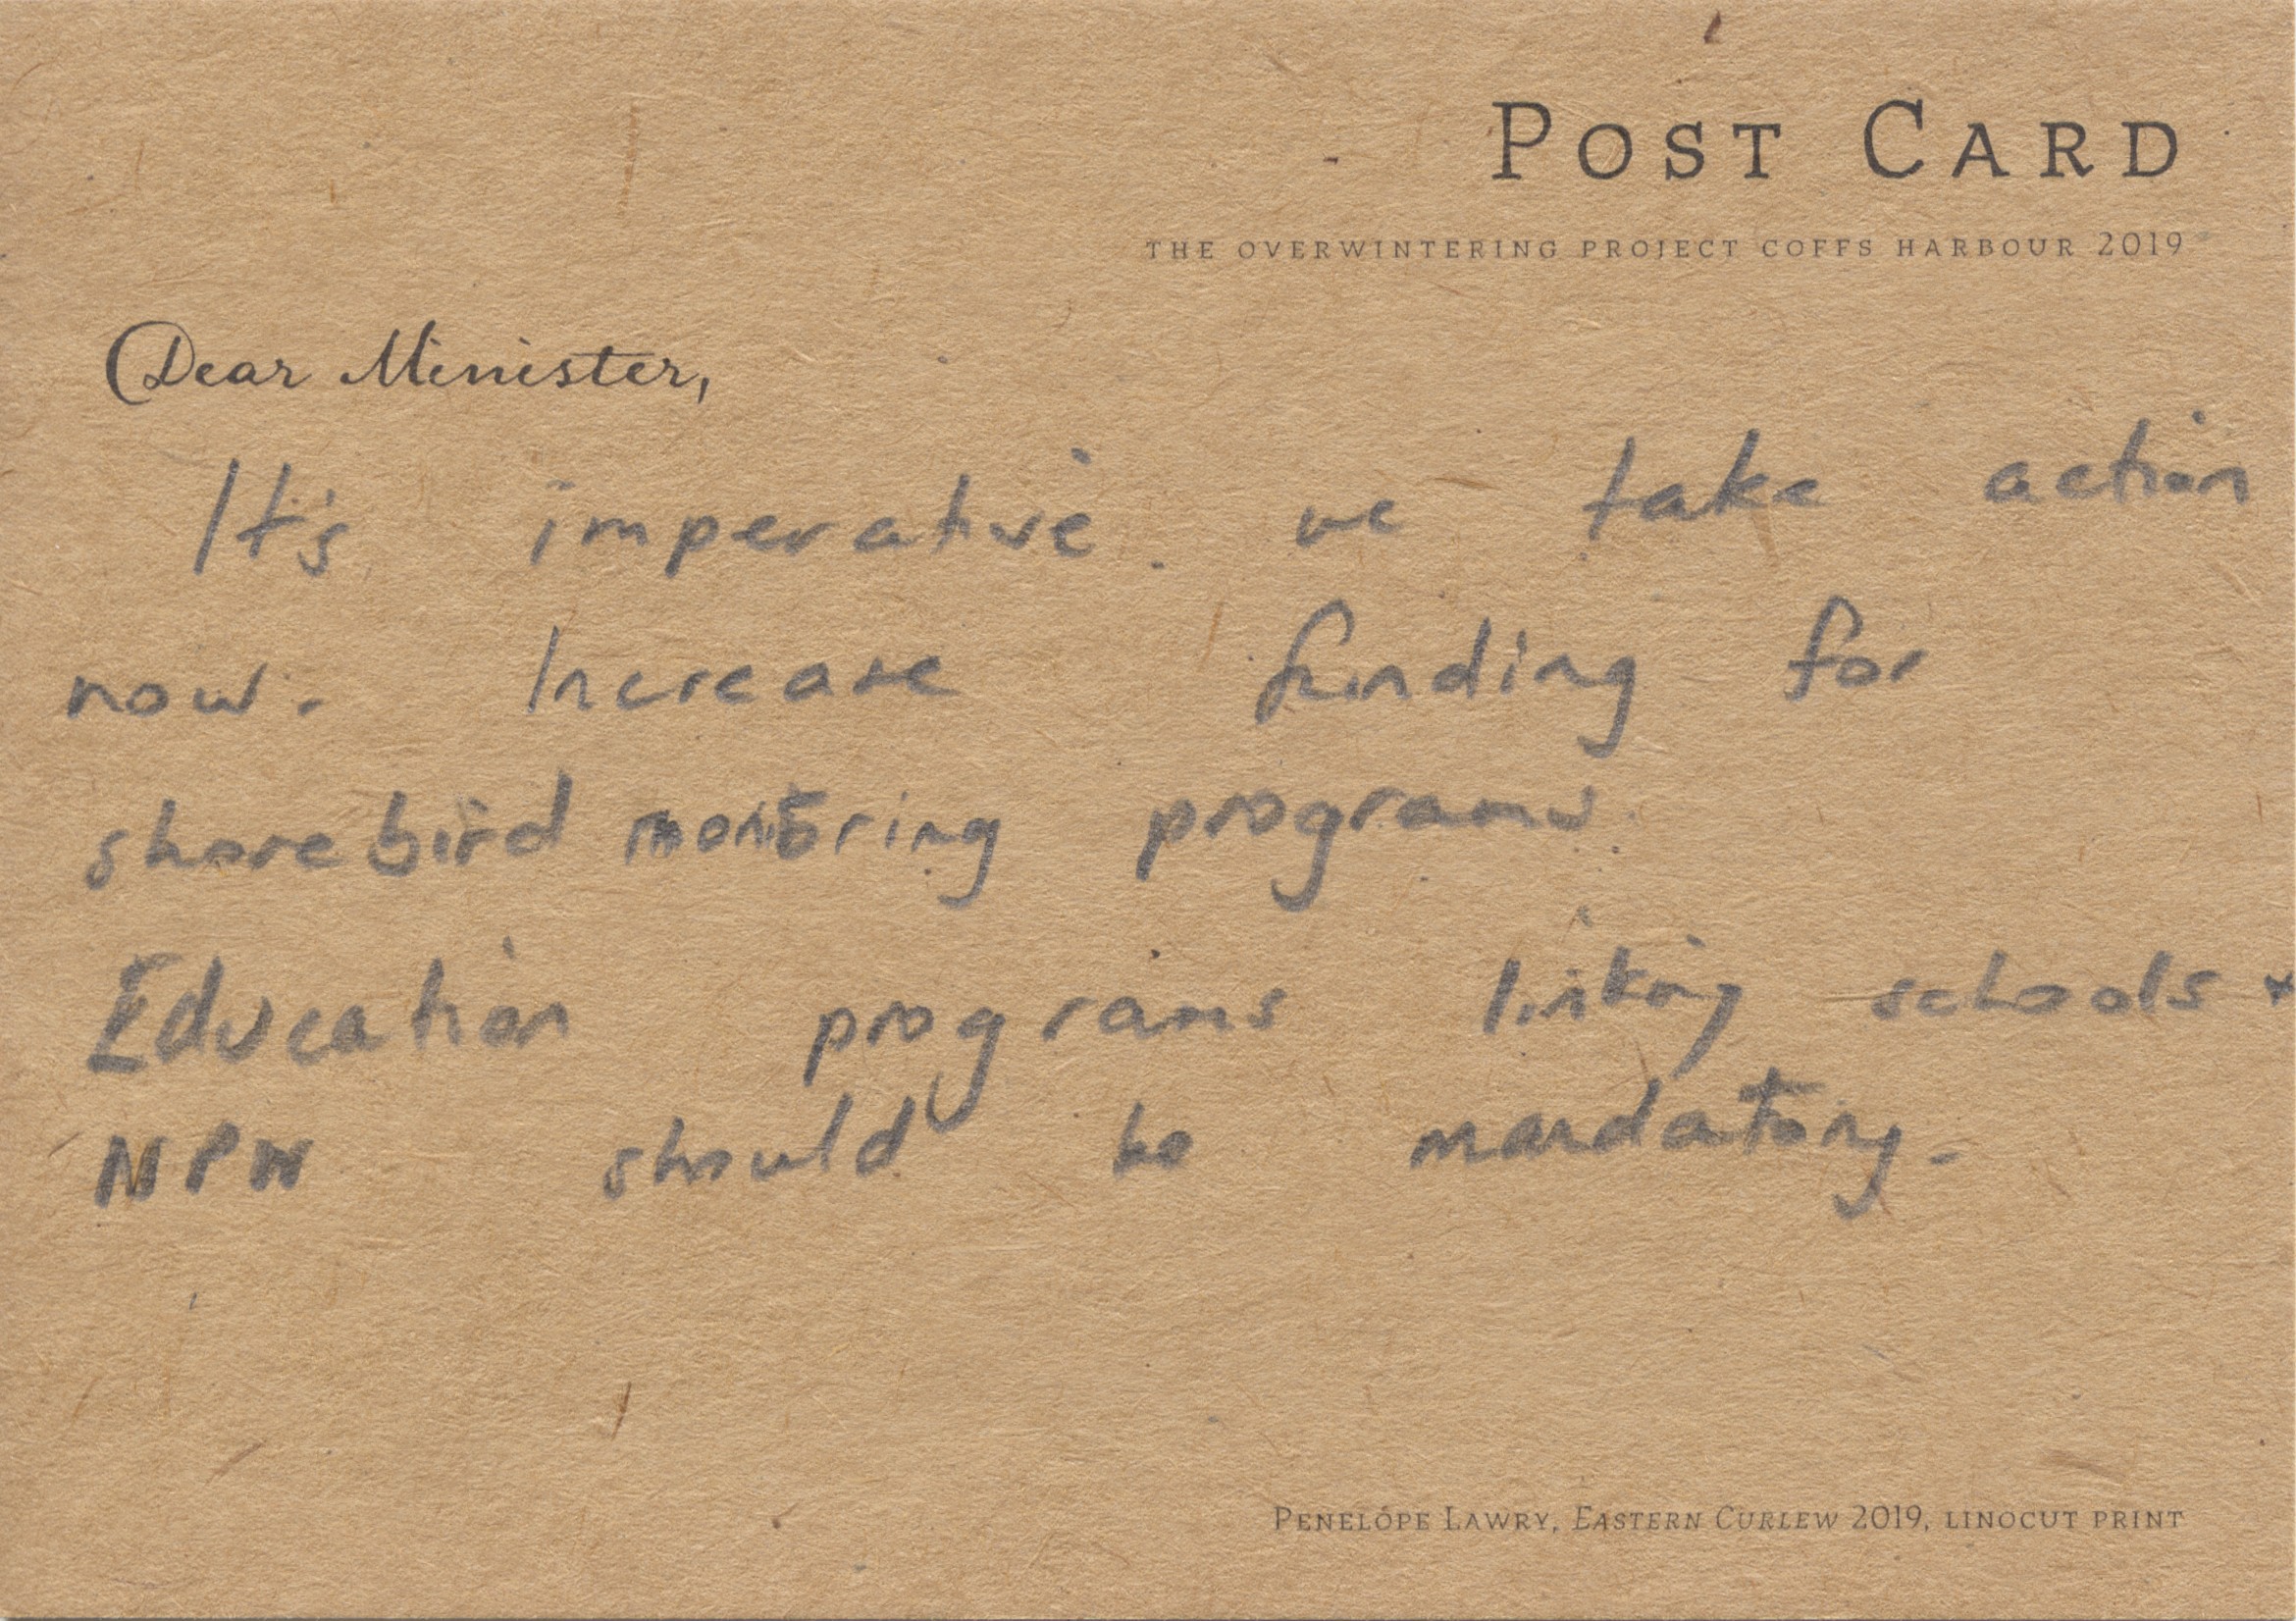 POST CARD
THE OVERWINTERING PROJECT COFFS HARBOUR 2019
Dear Minister,
It's imperative we take action
now. Increase funding for
shorebird monitoring programs.
Education programs linking schools +
NPW should be mandatory.
PENELOPE LAWRY, EASTERN CURLEW 2019, LINOCUT PRINT